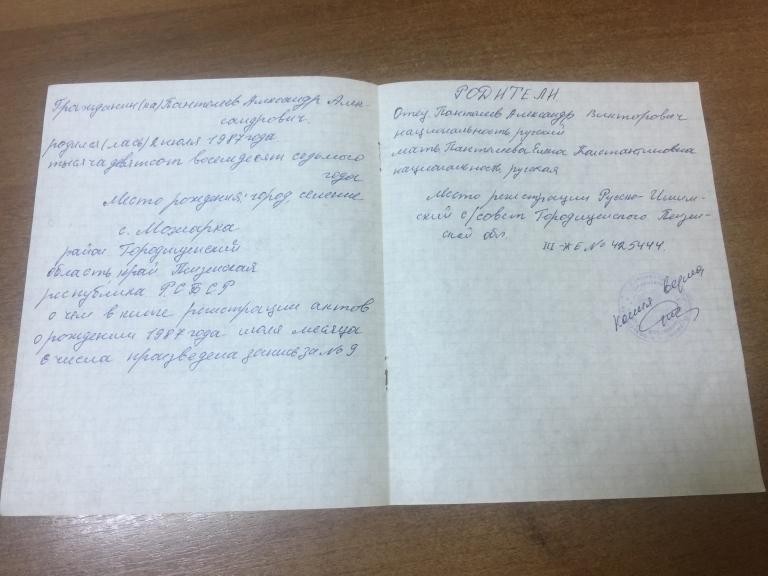 Гражданин(ка) Пантелеев Александр Алек-
сандрович.
родился(лась) 2 июля 1987 года
тысяча девятсот восемдесят седьмого
года
Место рождения: город, селение
с. Можарка
район Городищенский
область, край Пензенская
республика Р.С.Ф.С.Р
о чем в книге регистрации актов
о рождении 1987 года июля месяца
6 числа произведена запись за № 9
РОДИТЕЛИ.
Отец Пантелеев Александр Викторович
национальность русский
мать Пантелеева Елена Константиновна
национальность русская
Место регистрации Русско-Ишим-
ский с/совет Городищенского Пензен-
ской обл.
III-ЖЕ № 425444.
Копия верна